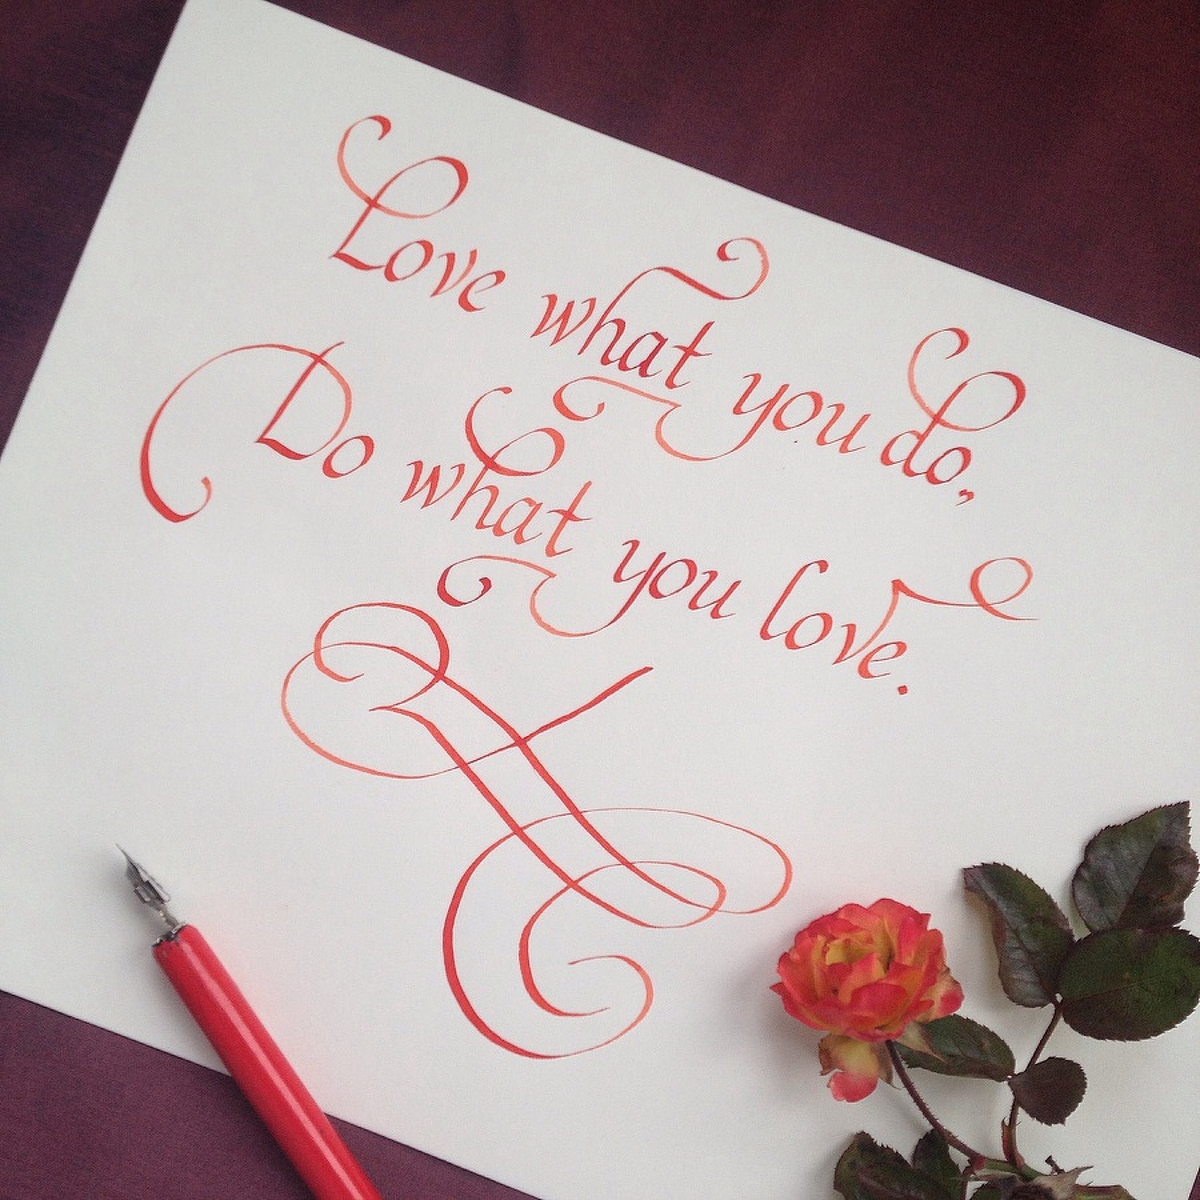 Love what you do,
Do what you love.